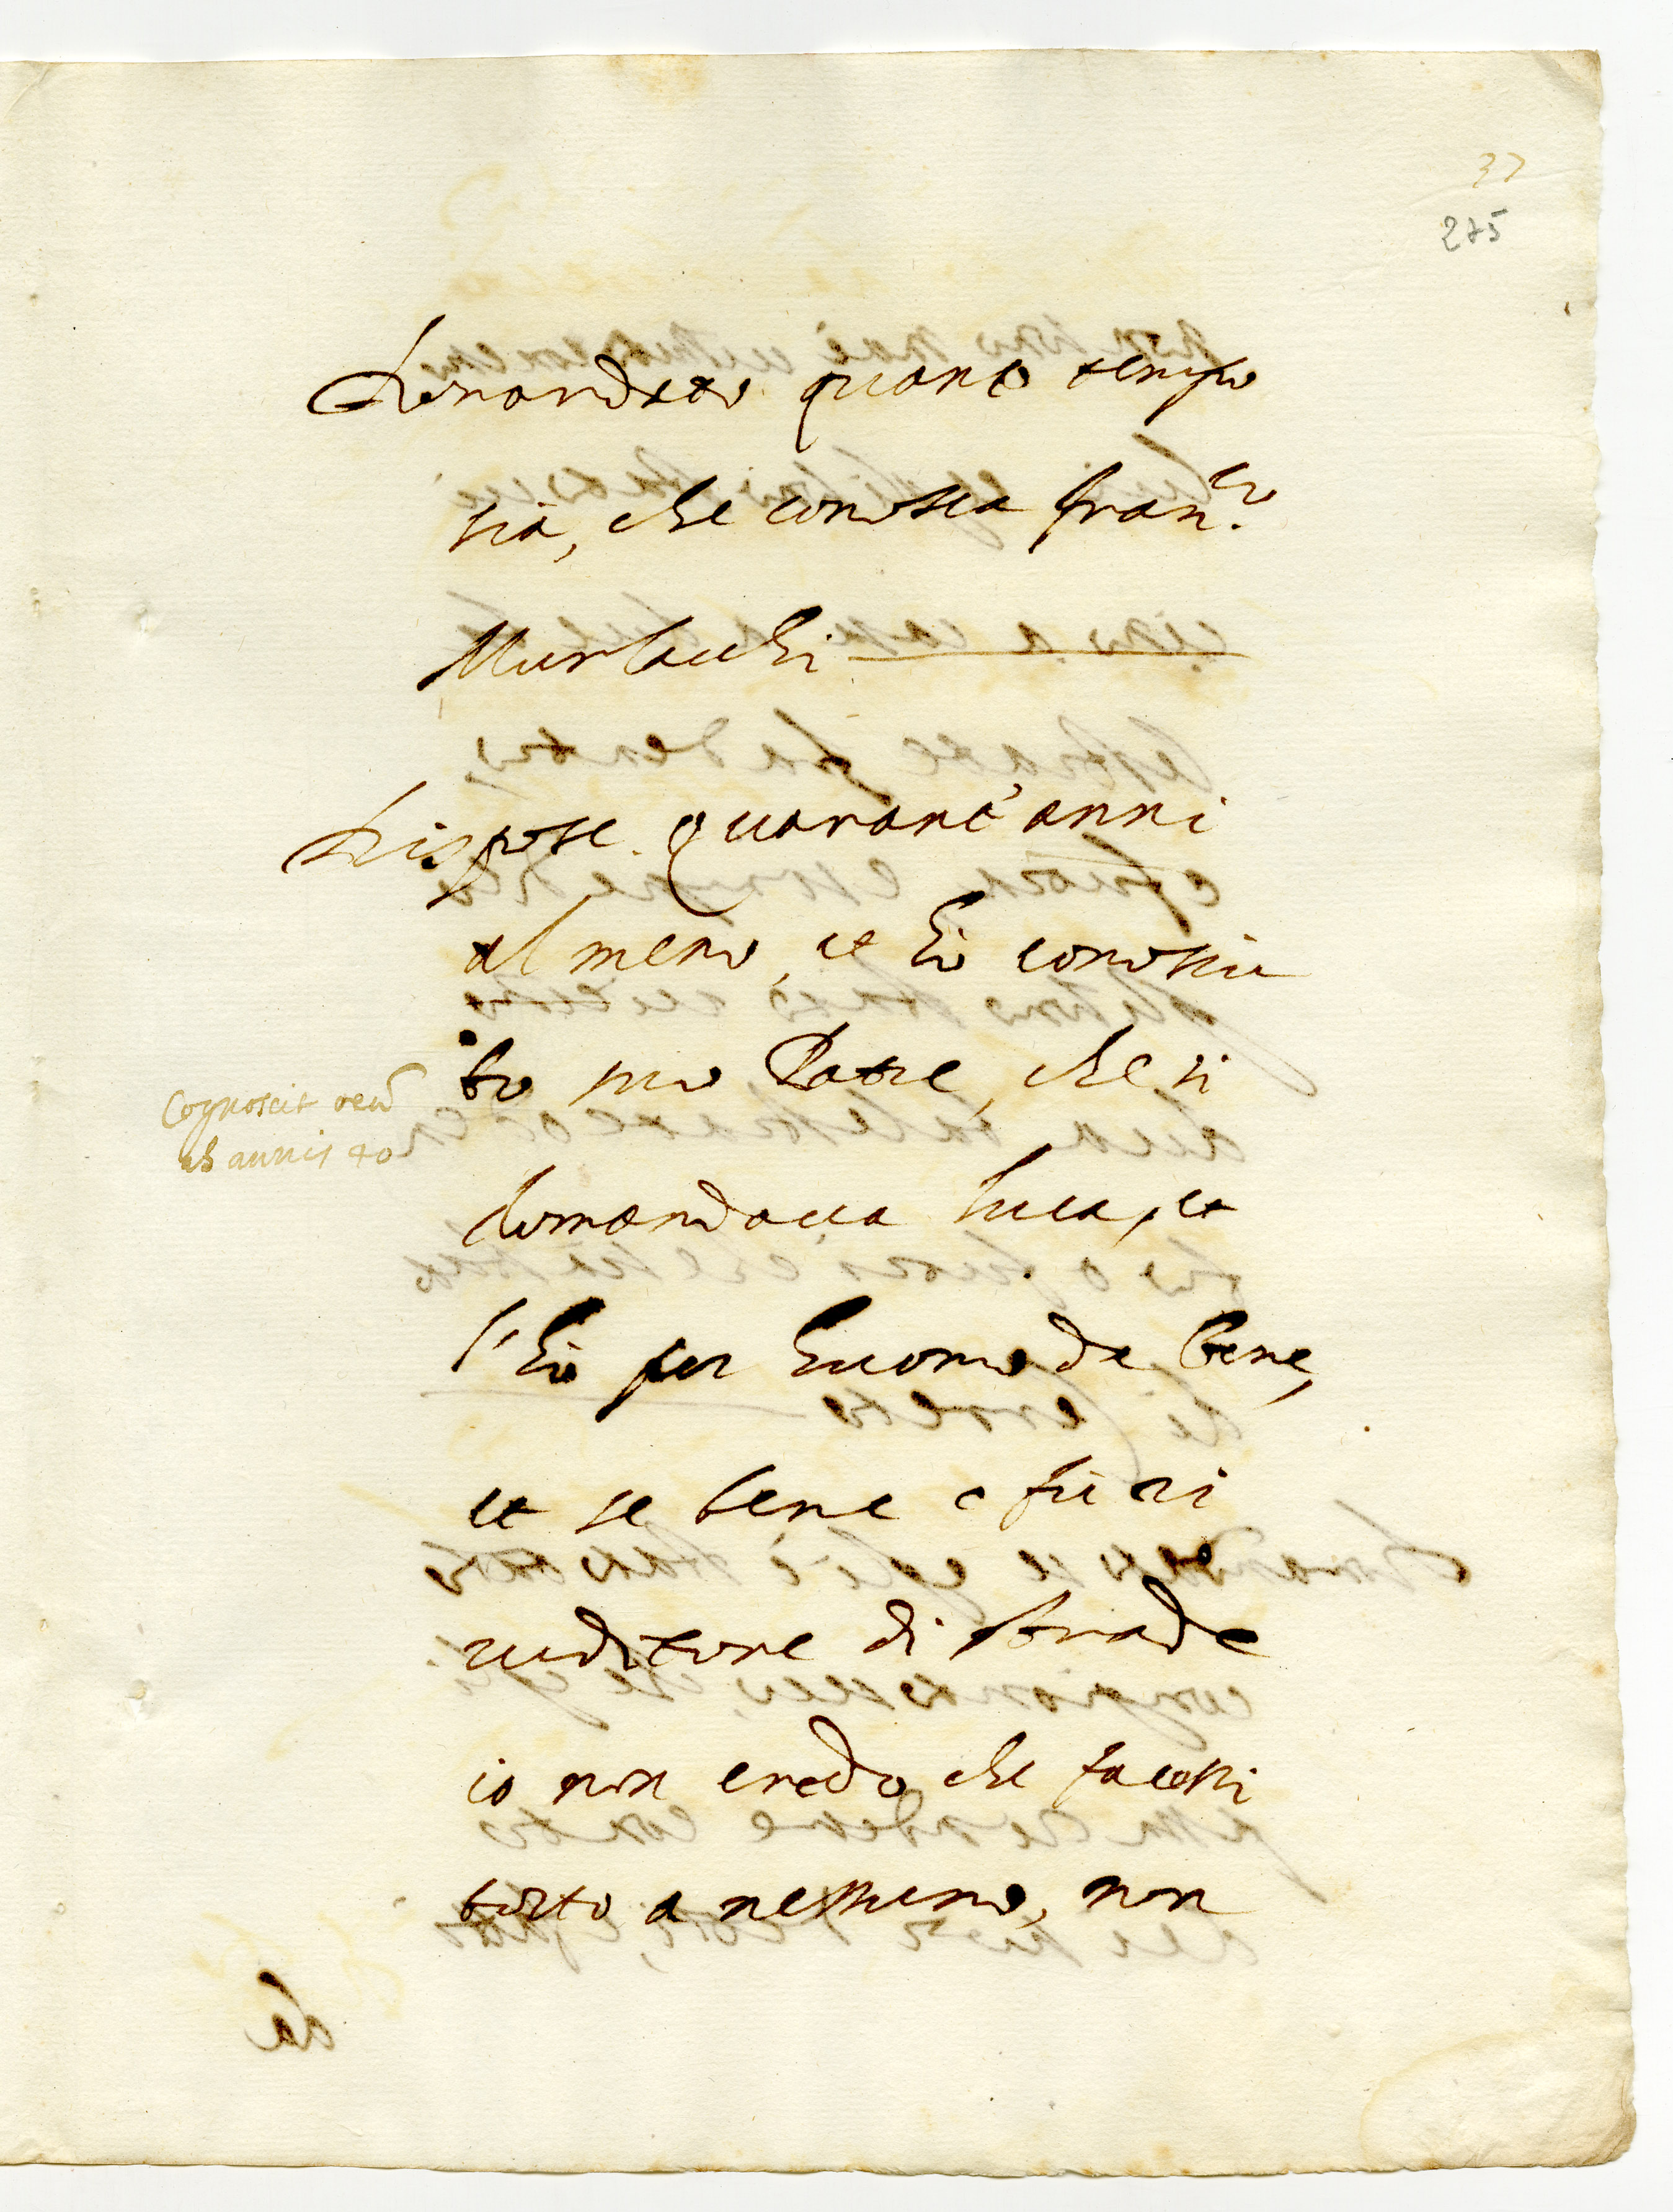 37
275
Domandato quanto tempo
sia, che conosca Fran.co
Murlacchi
Rispose. Quarant'anni
al meno, et hò conosciu
to suo Patre, che si
domandava Luca, et
l'hò per huomo da bene,
et se bene è fu ri
veditore di strade
io non credo che facessi
torto a nessuno, non
Cognoscit reũ
ab annis 40